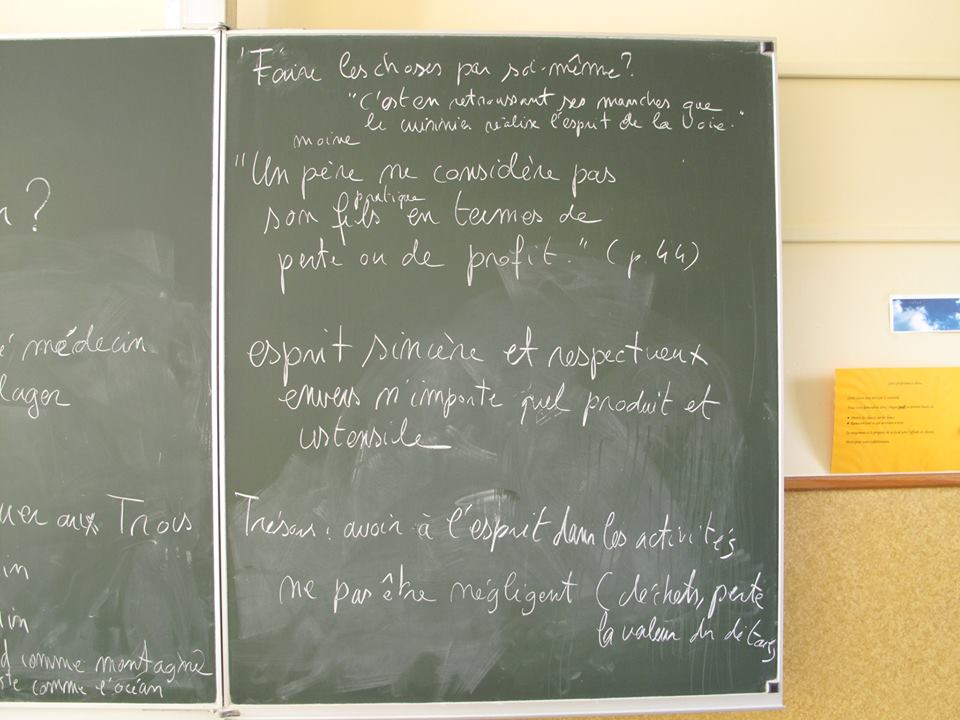 ?
médecin
lager
uer aux Trois
in
in
d comme montagne
ste comme l'océan
"Faire les choses par soi-même?
"C'est en retroussant ses manches que
le cuisinier réalise l'esprit de la Voie."
moine
"Un père ne considère pas
pratique
son fils en termes de
perte ou de profit." (p. 44)
esprit sincère et respectueux
envers n'importe quel produit et
ustensile
Trésors: avoir à l'esprit dans les activités
ne pas être négligent (déchets, perte
la valeur du